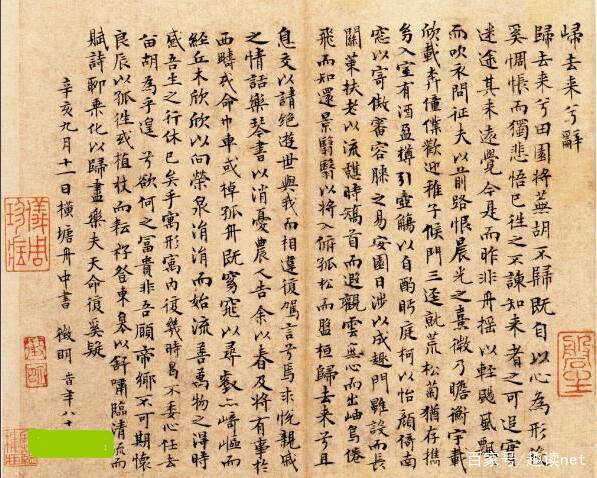 歸去来兮辭
歸去来兮田園将蕪胡不歸既自以心為形役
奚惆悵而獨悲悟已徃之不諫知来者之可追寔
迷途其未遠覺今是而昨非舟摇以輕颺風飄
而吹衣問征夫以前路恨晨光之熹微乃瞻衡宇載
欣載奔僮僕歡迎稚子候門三逕就荒松菊猶存携
幼入室有酒盈樽引壺觴以自酌眄庭柯以怡顔倚南
窓以寄傲審容膝之易安園日涉以成趣門雖設而長
關策扶老以流憩時矯首而遐觀雲無心而出岫鳥倦
飛而知還景翳翳以将入撫孤松而盤桓歸去来兮且
息交以請絶遊世與我而相違復駕言兮焉求悦親戚
之情話樂琴書以消憂農人告余以春及将有事於
西疇或命巾車或棹孤舟既窈窕以尋壑亦崎嶇而
經丘木欣欣以向榮泉涓涓而始流善萬物之得時
感吾生之行休已矣乎寓形寓内復幾時曷不委心任去
留胡為乎遑遑兮欲何之富貴非吾願帝鄉不可期懷
良辰以孤徃或植杖而耘耔登東皋以舒嘯臨清流而
賦詩聊乗化以歸盡樂夫天命復奚疑
辛亥九月十一日横塘舟中書 徵明 年八十
儀周珍藏
百家号/趣读net